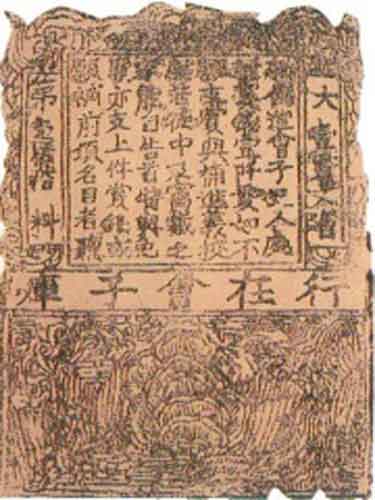 大壹貫文省
敕偽造會子犯人處
斬賞錢壹阡貫如不
願支賞與補進義校
尉若徒中及窩藏之
家能自告首特與免
罪亦支上件賞錢或
願補前項名目者聽
第壹百拾料
行在會子庫